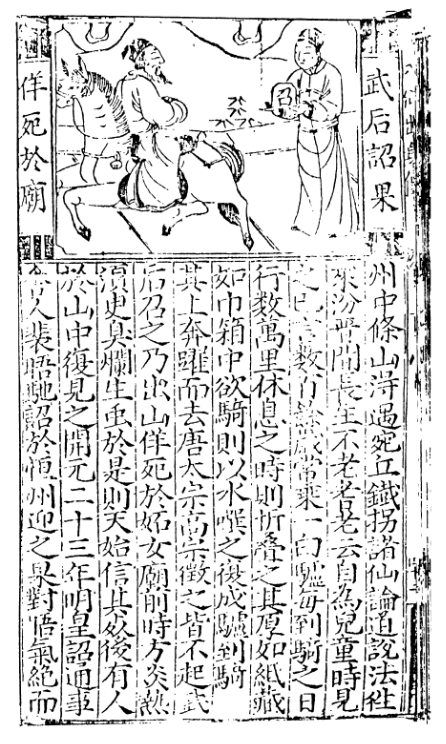 武后詔果
佯死於廟
召
州中條山淂遇宛丘鐵拐諸仙論道説法徃
來汾晋間長生不老老云自為兒童時見
之已言數百餘歲常乗一白驢每到騎之日
行數萬里休息之時則折疊之其厚如紙藏
如巾箱中欲騎則以水噀之復成驢到騎
其上奔躍而去唐太宗高宗徵之皆不起武
后召之乃出山佯死於妬女廟前時方炎熱
須臾臭爛生虫於是則天始信其死後有人
於山中復見之開元二十三年明皇詔通事
舍人裴晤馳詔於恒州迎之果對悟氣絕而